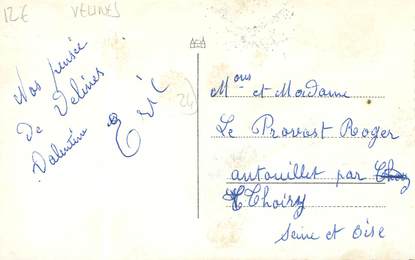 12€
VELINES
24
Nos pensée
De Velines
Valentine
Eric
Mons et Madame
Le Provost Roger
autouillet par Thoiry
Thoiry
Seine et Oise